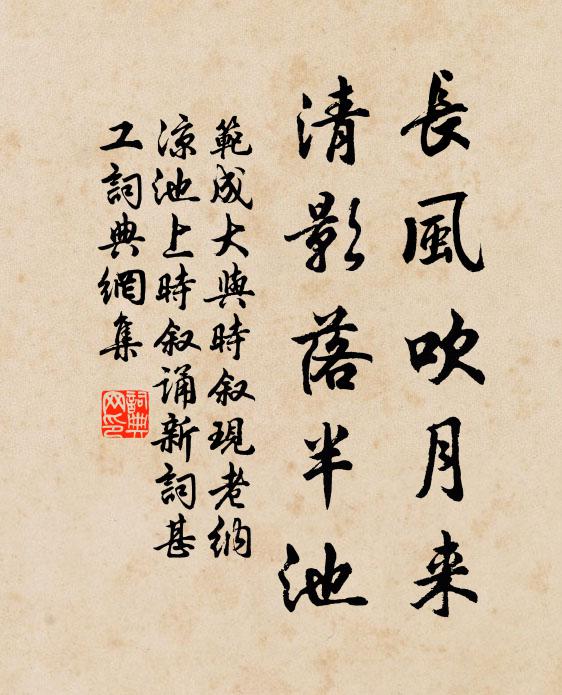 長風吹月来
清影落半池
範成大與時叙現老納
凉池上時叙誦新詞甚
工詞典網集
詞典
网印